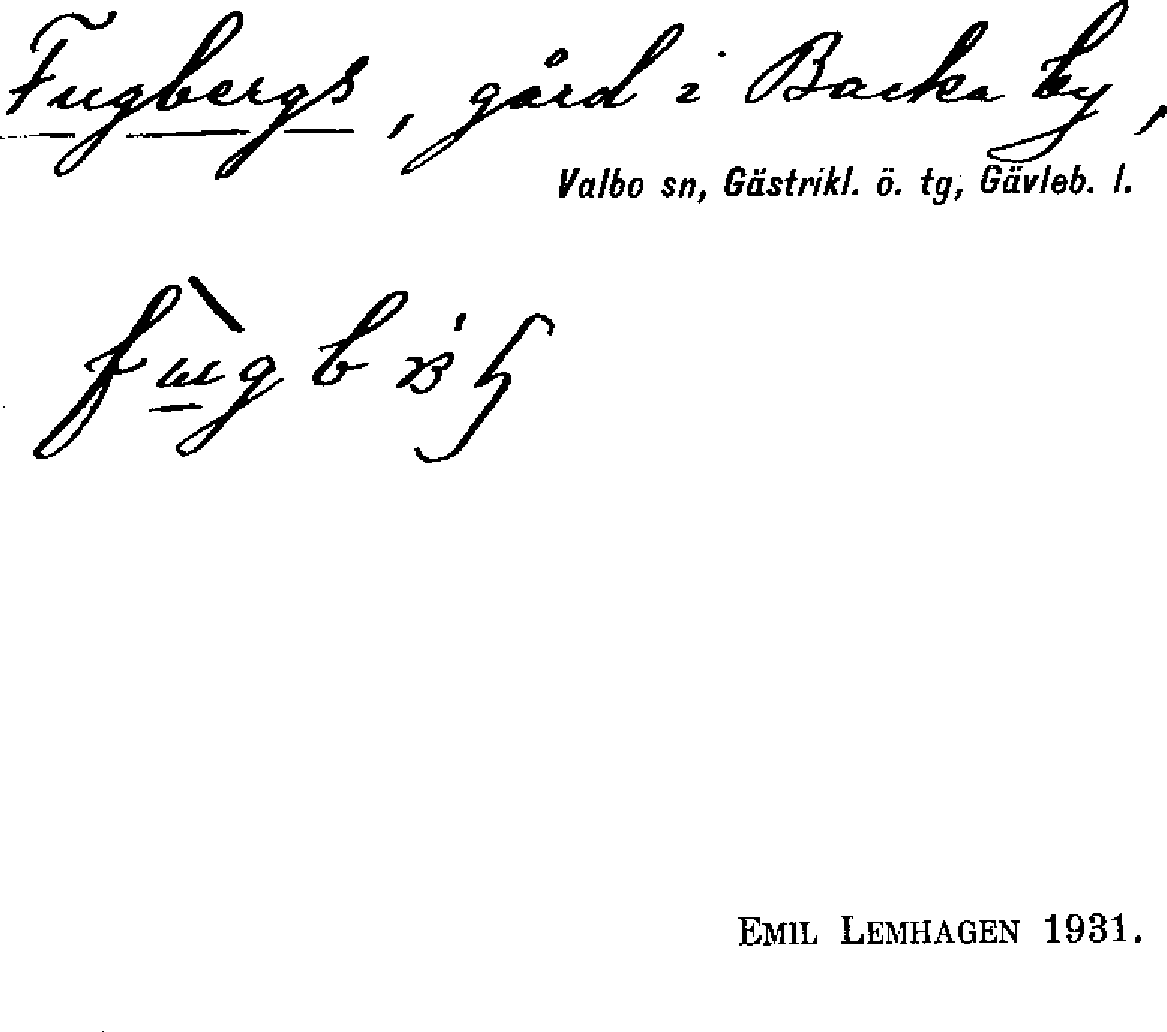 Fugbergs, gård i Backa by,
Valbo sn, Gästrikl. ö. tg, Gävleb. l.
EMIL LEMHAGEN 1931.